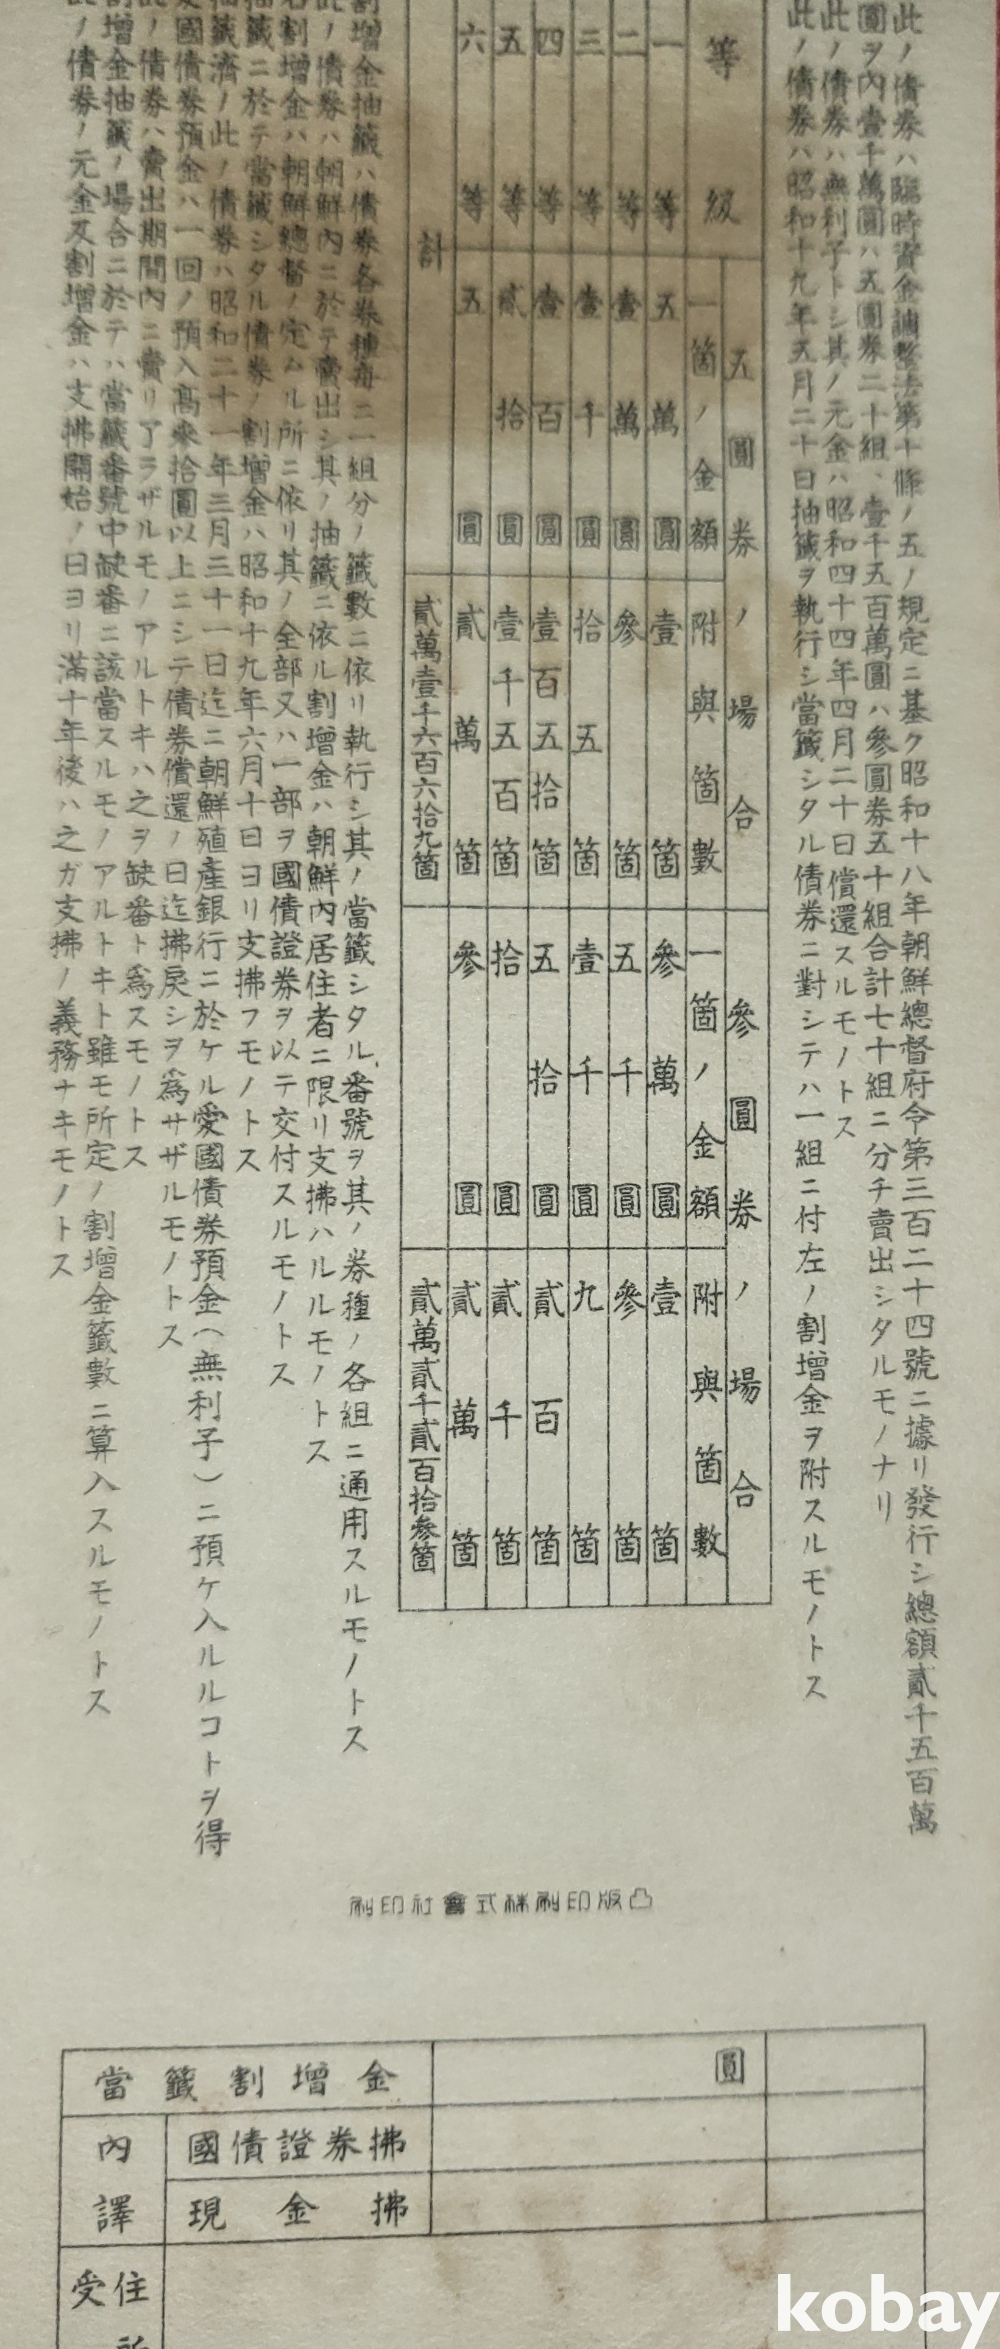 此ノ債券ハ臨時資金調整法第十條ノ五ノ規定ニ基ク昭和十八年朝鮮總督府令第三百二十四號ニ據リ發行シ總額貳千五百萬
圓ヲ內壹千萬圓ハ五圓券二十組、壹千五百萬圓ハ參圓券五十組合計七十組ニ分チ賣出シタルモノナリ
此ノ債券ハ無利子トシ其ノ元金ハ昭和四十四年四月二十日償還スルモノトス
此ノ債券ハ昭和十九年五月二十日抽籤ヲ執行シ當籤シタル債券ニ對シテハ一組ニ付左ノ割增金ヲ附スルモノトス
等級
五圓券ノ場合
參圓券ノ場合
一箇ノ金額
附與箇數
一箇ノ金額
附與箇數
一等 五萬圓 壹箇 參萬圓 壹箇
二等 壹萬圓 參箇 五千圓 參箇
三等 壹千圓 拾五箇 壹千圓 九箇
四等 壹百圓 壹百五拾箇 五拾圓 貳百箇
五等 貳拾圓 壹千五百箇 拾圓 貳千箇
六等 五圓 貳萬箇 參圓 貳萬箇
計 貳萬壹千六百六拾九箇 貳萬貳千貳百拾參箇
割增金抽籤ハ債券各券種每ニ一組分ノ籤數ニ依リ執行シ其ノ當籤シタル番號ヲ其ノ券種ノ各組ニ通用スルモノトス
此ノ債券ハ朝鮮內ニ於テ賣出シ其ノ抽籤ニ依ル割增金ハ朝鮮內居住者ニ限リ支拂ハルルモノトス
右割增金ハ朝鮮總督ノ定ムル所ニ依リ其ノ全部又ハ一部ヲ國債證券ヲ以テ交付スルモノトス
抽籤ニ於テ當籤シタル債券ノ割增金ハ昭和十九年六月十日ヨリ支拂フモノトス
抽籤濟ノ此ノ債券ハ昭和二十一年三月三十一日迄ニ朝鮮殖產銀行ニ於ケル愛國債券預金(無利子)ニ預ケ入ルルコトヲ得
愛國債券預金ハ一回ノ預入高參拾圓以上ニシテ債券償還ノ日迄拂戾シヲ爲サザルモノトス
此ノ債券ハ賣出期間內ニ賣リ了ラザルモノアルトキハ之ヲ缺番ト爲スモノトス
割增金抽籤ノ場合ニ於テハ當籤番號中缺番ニ該當スルモノアルトキト雖モ所定ノ割增金籤數ニ算入スルモノトス
此ノ債券ノ元金及割增金ハ支拂開始ノ日ヨリ滿十年後ハ之ガ支拂ノ義務ナキモノトス
刷印社會式株刷印版凸
當籤割增金 圓
內譯
國債證券拂
現金拂
受住
所
kobay